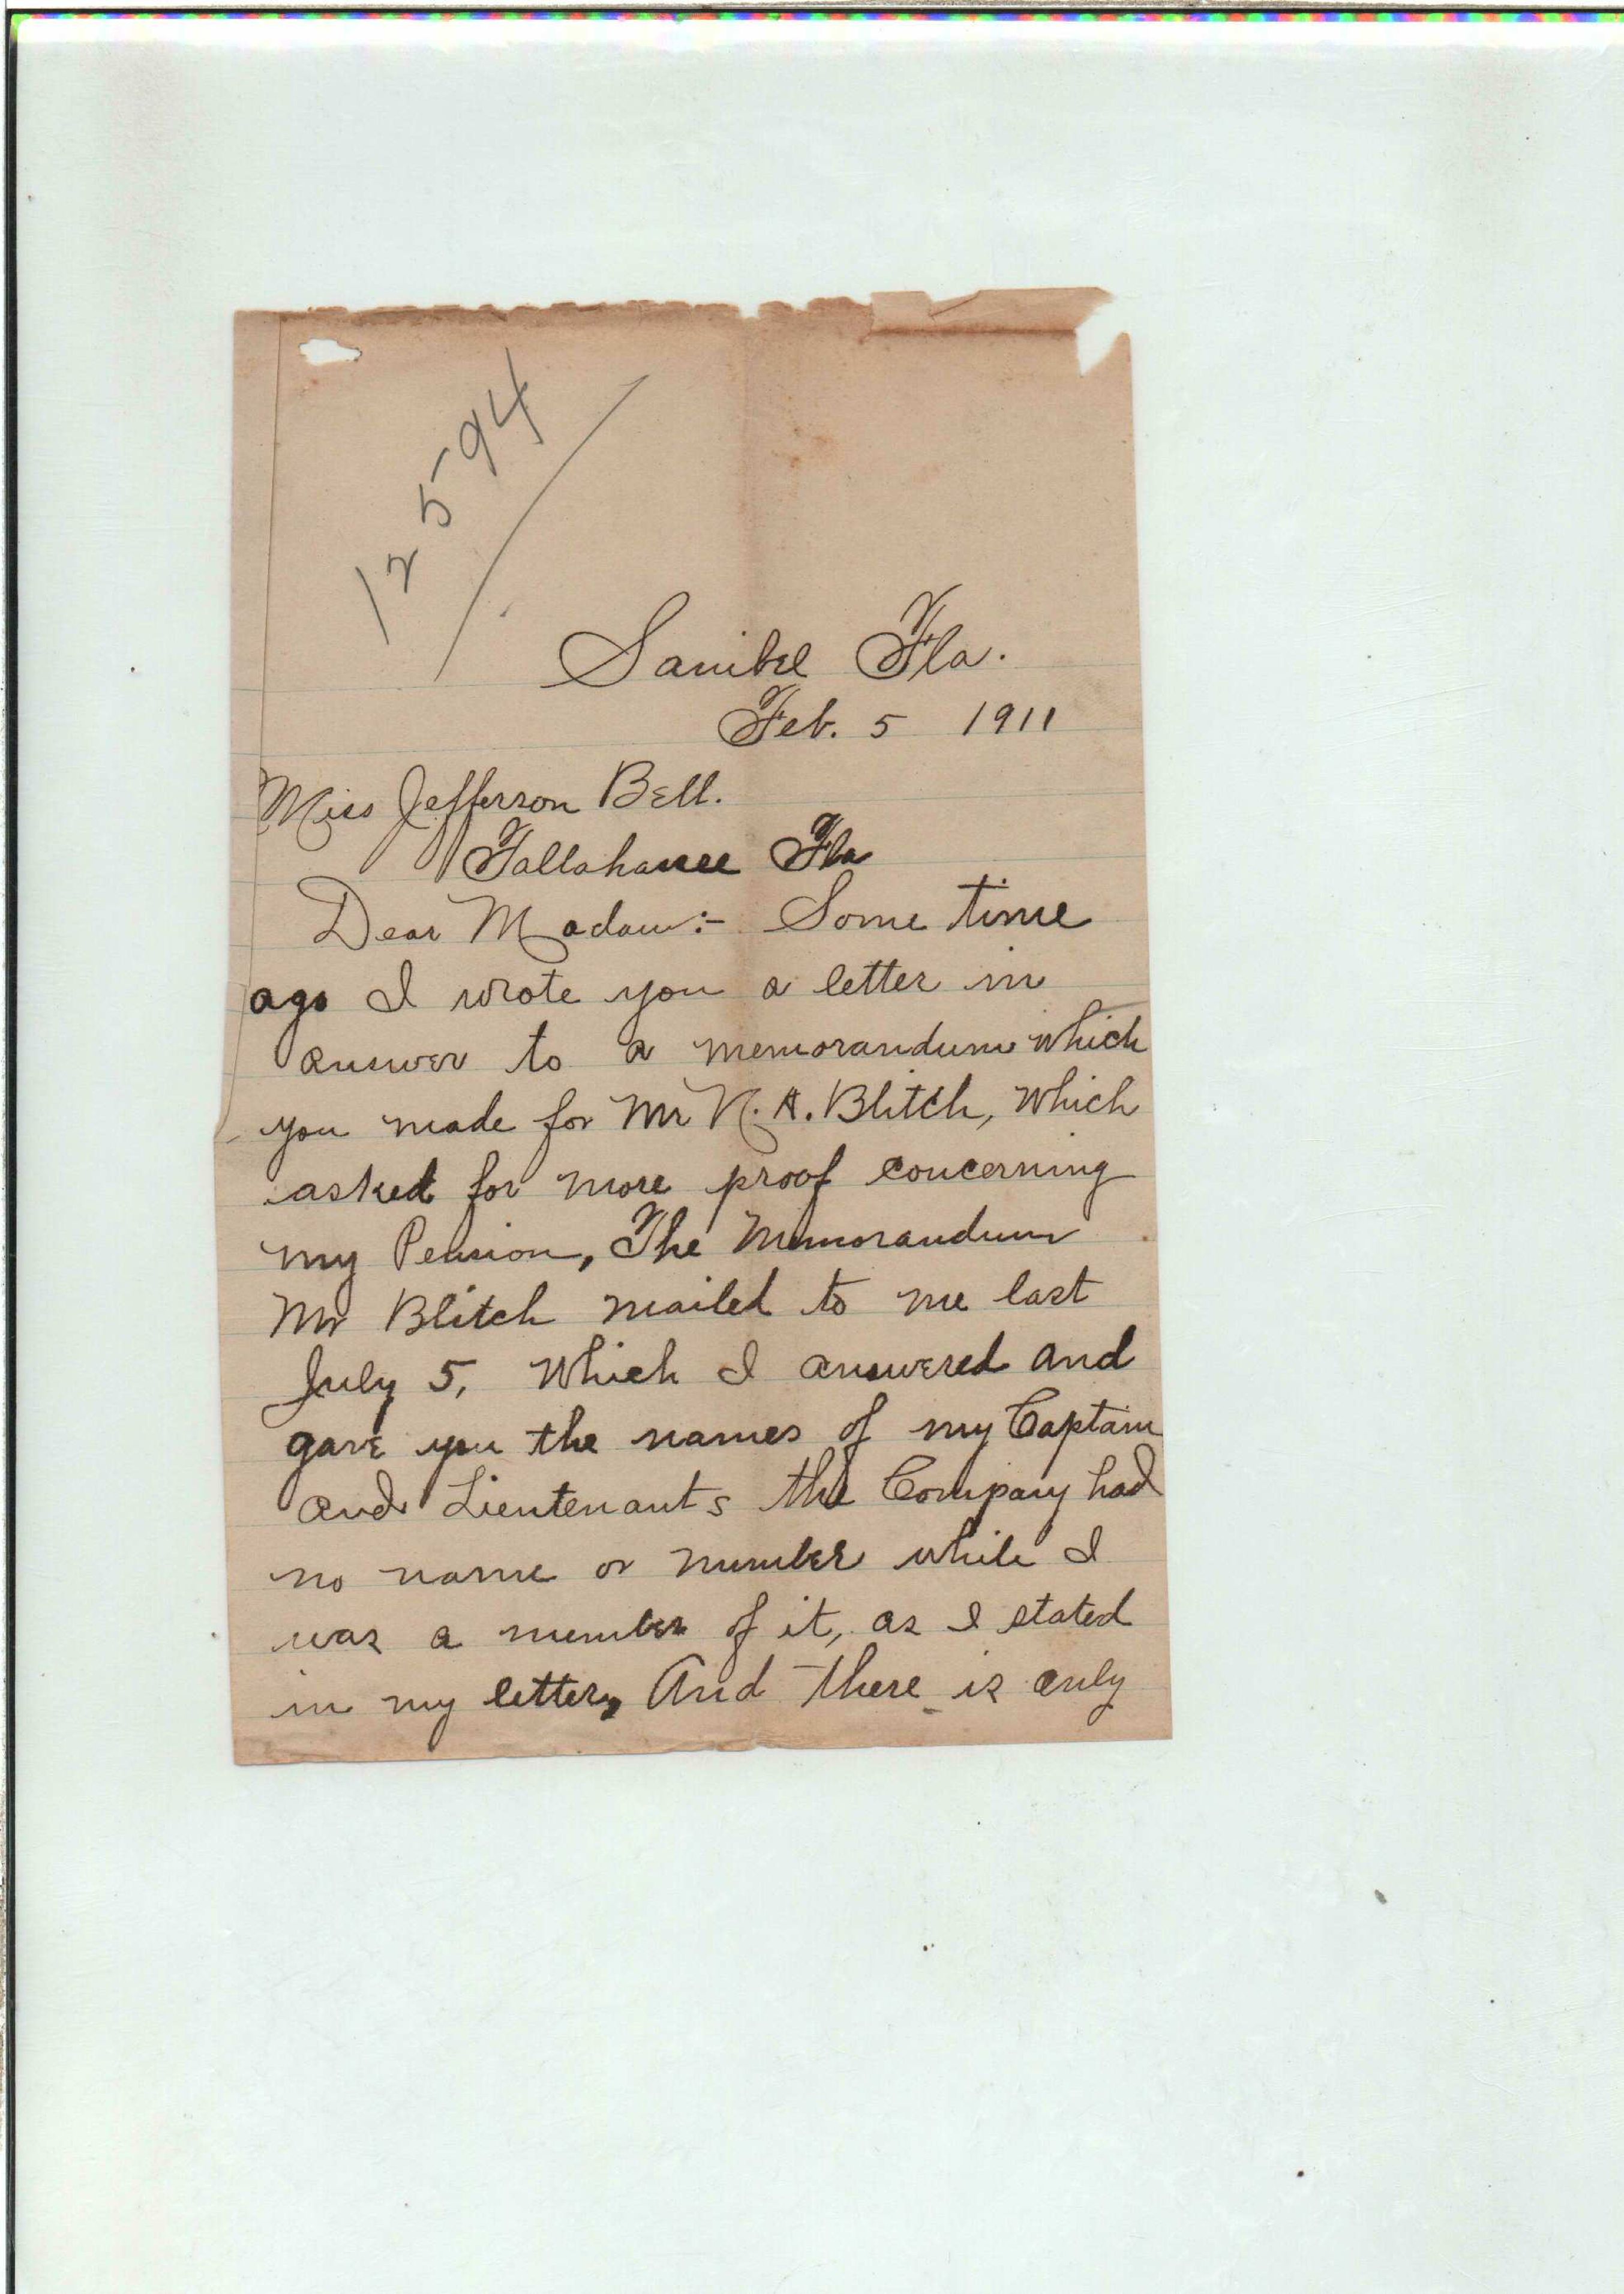 12594
Sanibel Fla.
Feb. 5 1911
Miss Jefferson Bell.
Tallahassee Fla
Dear Madam:- Some time
ago I wrote you a letter in
answer to a memorandum which
you made for Mr N. A. Blitch, which
asked for more proof concerning
my Pension, The Memorandum
Mr Blitch mailed to me last
July 5, Which I answered and
gave you the names of my Captain
and Lieutenants the Company had
no name or number while I
was a member of it, as I stated
in my letter, And there is only